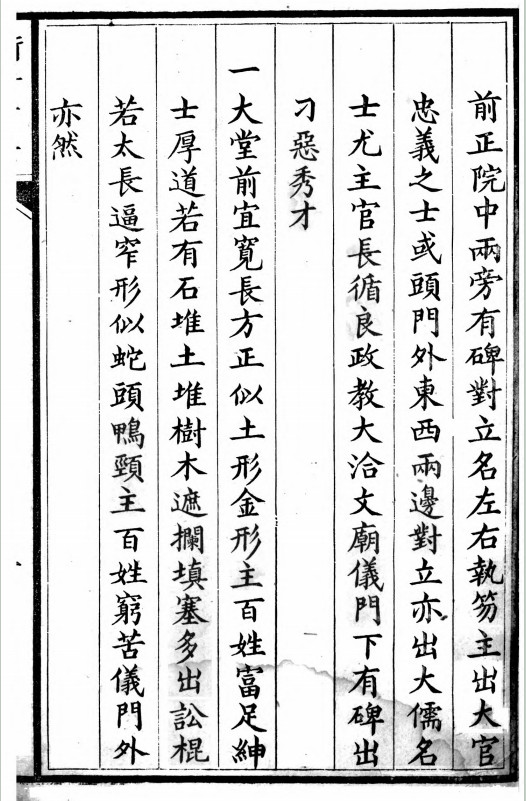 前正院中兩旁有碑對立名左右執笏主出大官
忠義之士或頭門外東西兩邊對立亦出大儒名
士尤主官長循良政教大洽文廟儀門下有碑出
刁惡秀才
一大堂前宜寬長方正似土形金形主百姓富足紳
士厚道若有石堆土堆樹木遮攔填塞多出訟棍
若太長逼窄形似蛇頭鴨頸主百姓窮苦儀門外
亦然